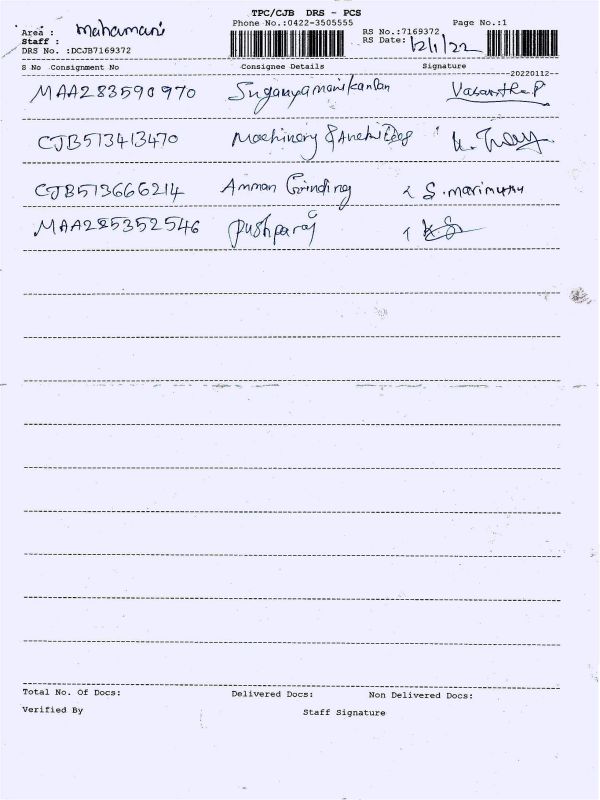 TPC/CJB DRS - PCS
Phone No.:0422-3505555
Page No.:1
Area : Mahamani
Staff :
DRS No. :DCJB7169372
RS No.:7169372
RS Date: 12/1/22
S No Consignment No Consignee Details Signature
--20220112--
MAA283590970 Suganyamanikandan Vasantha.P
CJB513413470 Machinery &
CJB513666214 Amman Grinding S. marimuthu
MAA285352546 Pushparaj
Total No. Of Docs: Delivered Docs: Non Delivered Docs:
Verified By Staff Signature